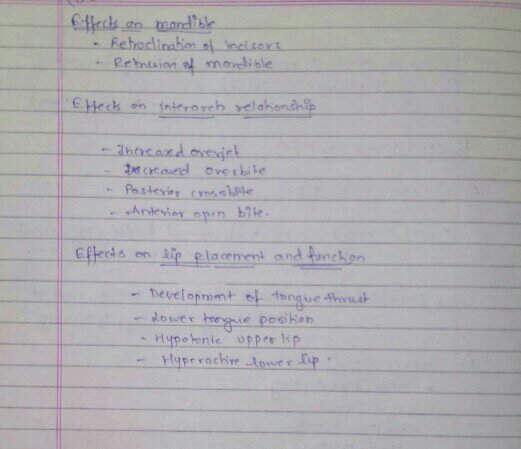 Effects on mandible
- Retroclination of incisors
- Retrusion of mandible
Effects on interarch relationship
- Increased overjet
- Decreased overbite
- Posterior crossbite
- Anterior open bite.
Effects on lip placement and function
- Development of tongue thrust
- Lower tongue position
- Hypotonic upper lip
- Hyperactive lower lip.